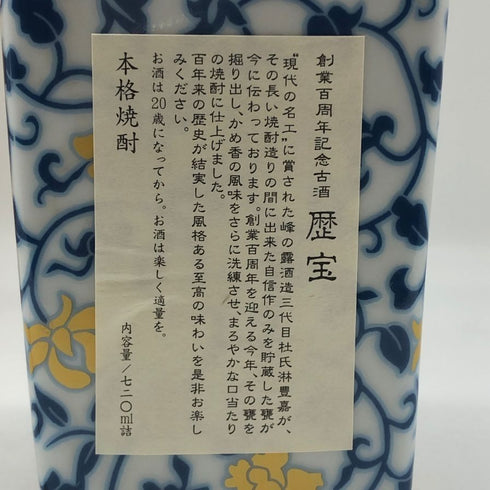 創業百周年記念古酒 歴宝
"現代の名工"に賞された峰の露酒造三代目杜氏淋豊嘉が、
その長い焼酎造りの間に出来た自信作のみを貯蔵した甕が
今に伝わっております。創業百周年を迎える今年、その甕を
掘り出し、かめ香の風味をさらに洗練させ、まろやかな口当たり
の焼酎に仕上げました。
百年来の歴史が結実した風格ある至高の味わいを是非お楽し
みください。
本格焼酎
お酒は20歳になってから。お酒は楽しく適量を。
内容量/七二〇ml詰